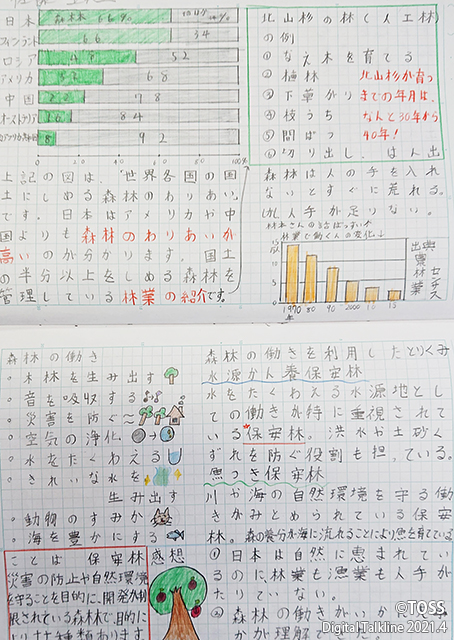 日本 森林 66%
フィンランド 66 34
ロシア 52
アメリカ 32 68
中国 22 78
オーストラリア 16 84
8 92
0 20 40 60 80 100%
上記の図は、世界各国の国
土にしめる森林のわりあい
です。日本はアメリカや中
国よりも森林のわりあいが
高いのか分かります。国土
の半分以上をしめる森林を
管理している林業の紹介です。
北山杉の林(人工林)
の例
① なえ木を育てる
② 植林 北山杉が育つ
③ 下草かり までの年月は、
④ 枝うち なんと30年から
⑤ 間ばつ 40年!
⑥ 切り出し は人出
森林は人の手を入れ
ないとすぐに荒れる。
しかし人手が足りない。
林業で働く人の変化↓
1970年 80 90 2000 10 15
出典 農林業センサス
森林の働き
・木材を生み出す
・音を吸収する
・災害を防ぐ
・空気の浄化
・水をたくわえる
・きれいな水を
生み出す
・動物のすみか
・海を豊かにする
ことは 保安林
災害の防止や自然環境
を守ることを目的に、開発が制
限されている森林で、目的に
感想
森林の働きを利用したとりくみ
水源かん養保安林
水をたくわえる水源地とし
ての働きが特に重視されて
いる保安林。洪水や土砂く
ずれを防ぐ役割も担っている。
魚つき保安林
川や海の自然環境を守る働
きがみとめられている保安
林。森の養分が海に流れることにより魚を育てている
① 日本は自然に恵まれてい
るのに林業も漁業も人手が
たりていない。
② 森林の働きがいか
かが理解
©TOSS
Digital Talkline 2021.4